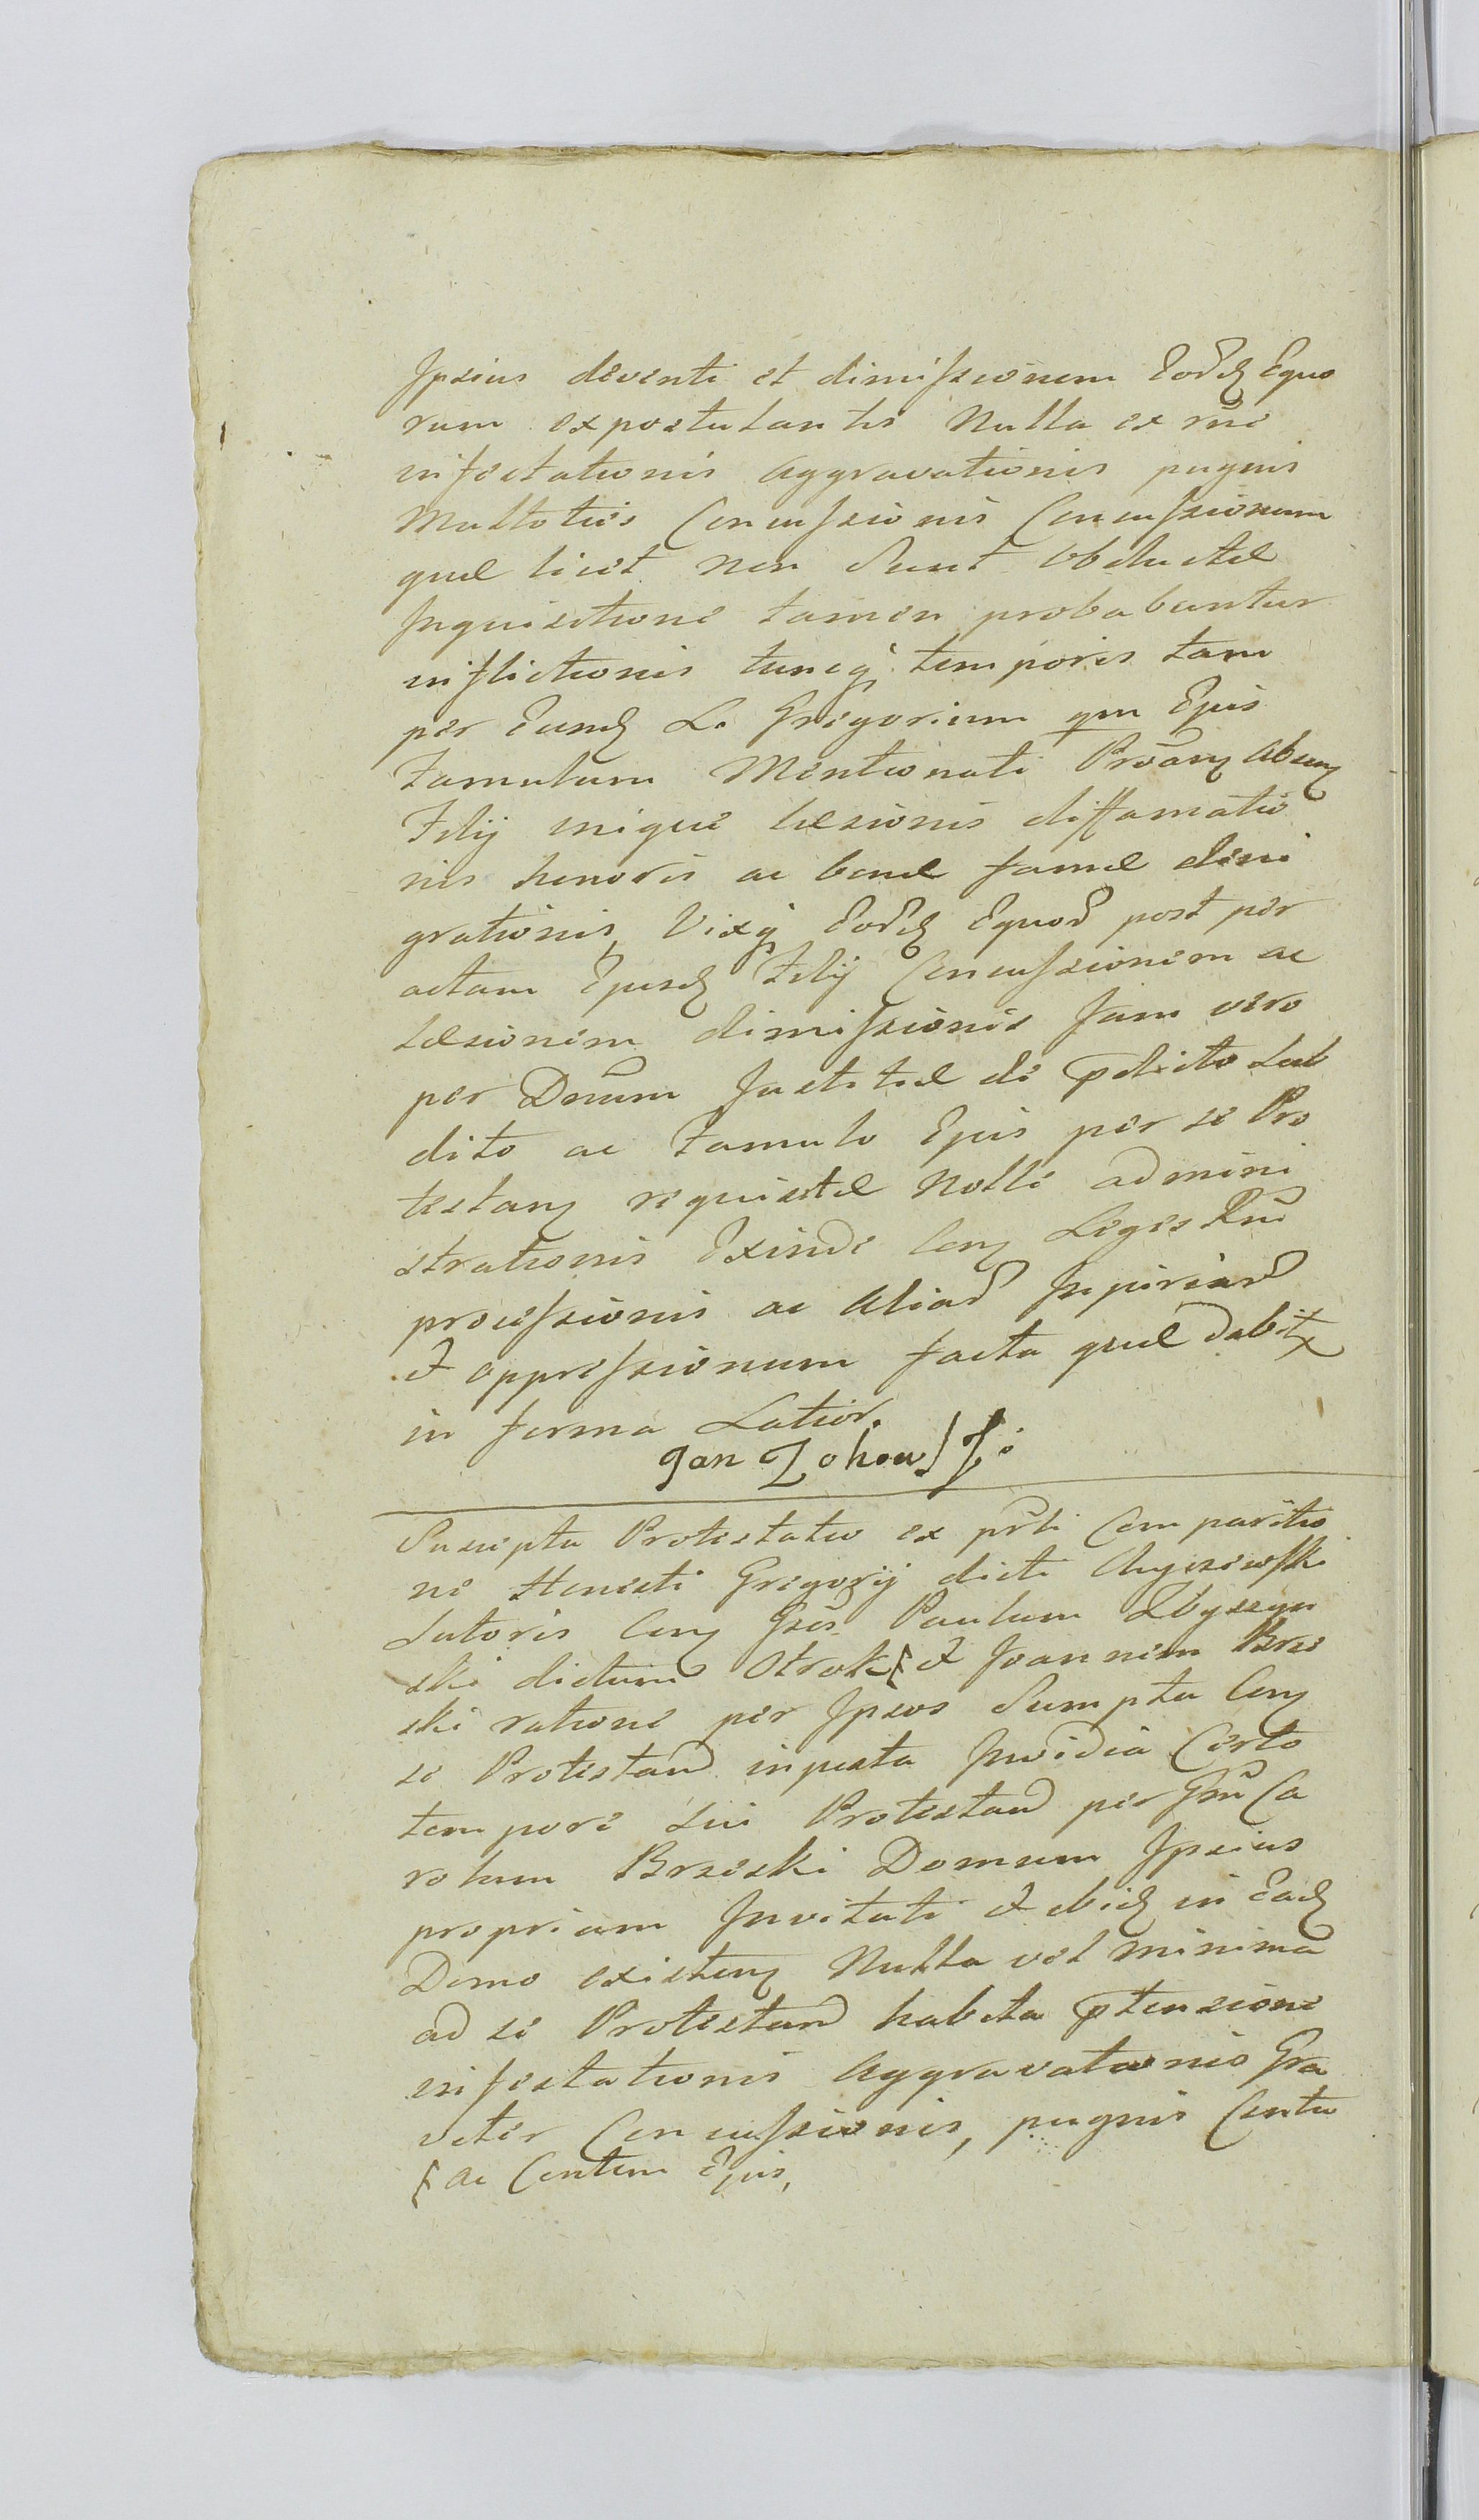 Ipsius deventi et dimissionem Eord Equo
rum expostulantis Nulla ex rnē
infestationis Aggravationis pugnis
Multoties Concussionis Concussionum
quæ licet non Sunt Obductæ
Inquisitione tamen probabuntur
inflictionis tuncq temporis tam
per Eund L. Gregorium qm Ejus
Famulum Mentionati
Filij inique læsionis diffamatio
nis honoris ac bonæ famæ deni
grationis, Vixq Eord Equor post per
actam Ejusd Filij Concussionem ac
Læsionem dimissionis Jam vero
per Dnum Justitiæ de pdicto Sub
dito ac Famulo Ejus per se Pro
testan requisitæ Nolle admini
strationis Exinde Con Leges Rni
processionis ac Aliar Injuriar
et oppressionum facta quæ dabit
in forma Latior.
Jan Zohowski
Suscepta Protestatio ex prti Comparitio
ne Honesti Gregorij dicti
Sutoris Con Gsos Paulum Zbyszyn
ski dictum Otrok et Joannem Brze
ski ratione per Ipsos Sumpta Con
se Protestand injusta Invidia Certo
tempore Sui Protestand per Gsm Ca
rolum Brzeski Domum Ipsius
propriam Invitati et ibid in Ead
Domo existen Nulla vel minima
ad se Protestand habita ptensione
infestationis Aggravationis Gra
viter Concussionis, pugnis Contu
ac Contum Ejus,